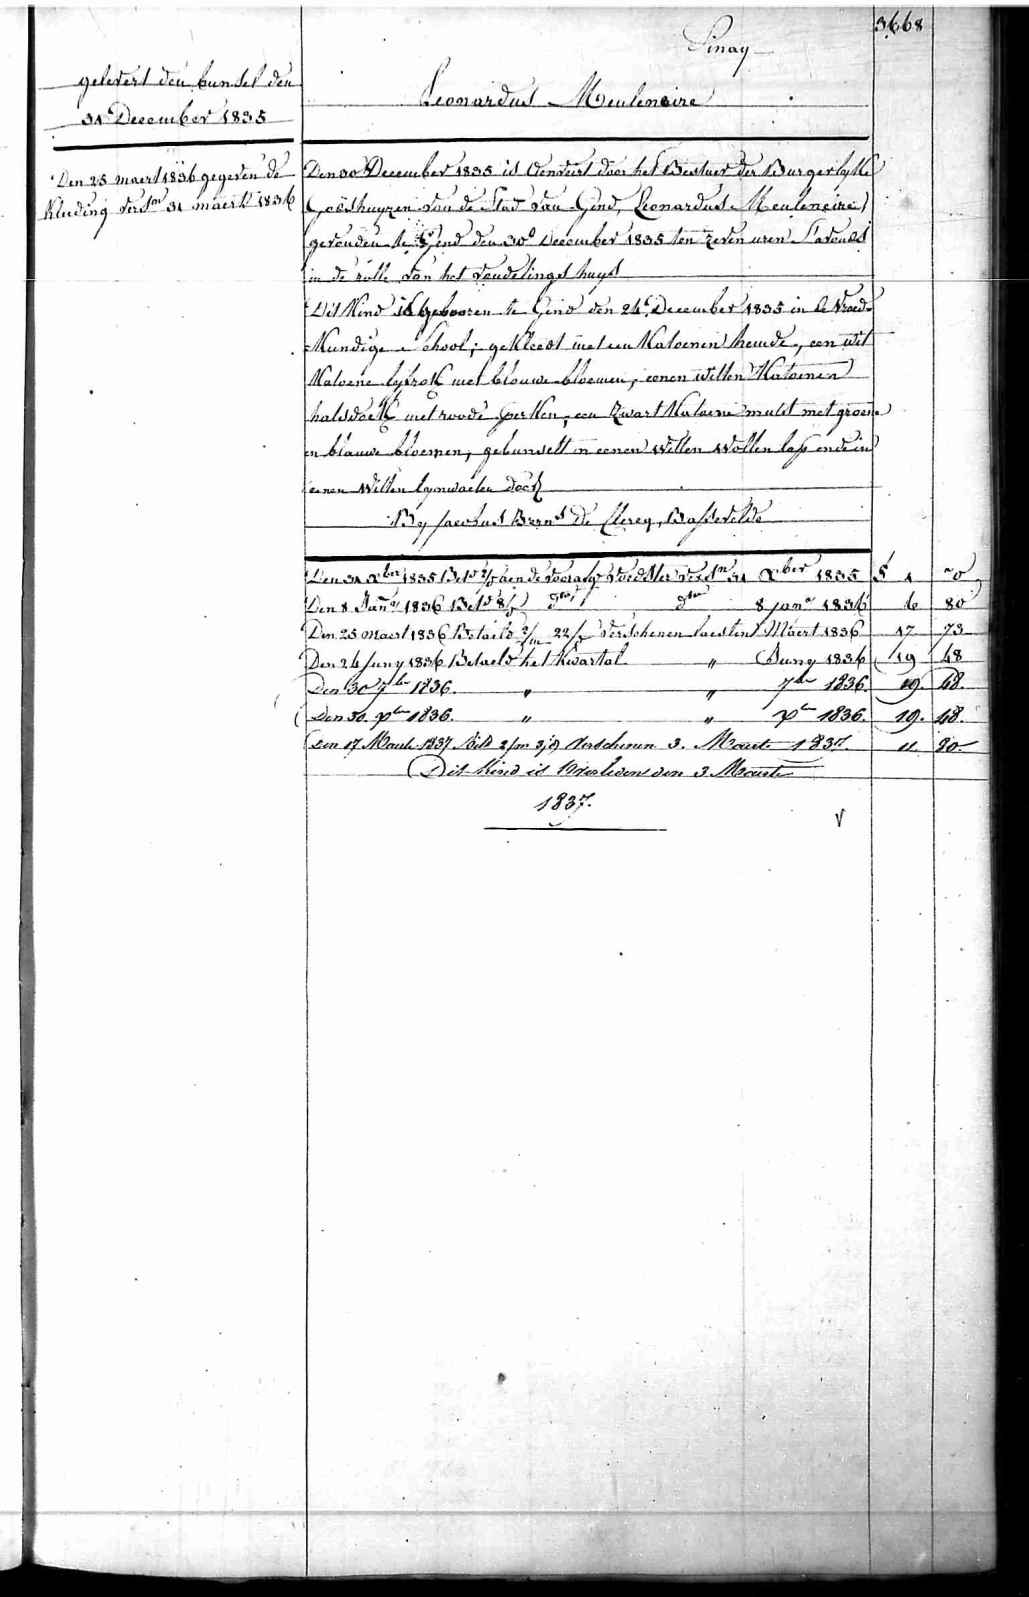 3668
Sinay
Leonardus Meuleneire
gelevert den bunsel den
31 December 1835
Den 25 maert 1836 gegeven de
Kleeding vers.n 31 maert 1836
Den 30 December 1835 is door het Bestuer der Burgerlyke
Godshuyzen van de Stad van Gend, Leonardus Meuleneire
gevonden te Gend den 30 December 1835 ten zeven uren s'avonds
in de rolle van het vondelingshuys
Dit Kind is gebooren te Gend den 24 December 1835 in de Vroed-
Kundige School; gekleed met een Katoenen hemde, een wit
Katoene lyfrok met blauwe bloemen, eenen witten Katoenen
halsdoek met roode perken, een zwart Katoene muts met groene
en blauwe bloemen, gebunselt in eenen witten wollen lap ende in
eenen witten lynwaeten doek
By Jacobus Bern.s De Clercq, Bassevelde
Den 31 Xber 1835 Bet.d aen de voedster vers.n 31 Xber 1835 1
Den 8 Jan.y 1836 Bet.d 8 d.to d.to 8 jan.y 1836 6 80
Den 25 maert 1836 Betaeld 2/m 22/d verschenen laesten Maert 1836 17 73
Den 24 Juny 1836 Betaeld het Kwartal " Juny 1836 19 48
Den 30 7ber 1836. " " 7ber 1836. 19. 48.
Den 30. Xber 1836. " " Xber 1836. 19. 48.
Den 17 Maerte 1837 Bet.d 2/m 3/d Verschenen 3. Maerte 1837. 11 80
Dit Kind is Overleden den 3 Maerte
1837.